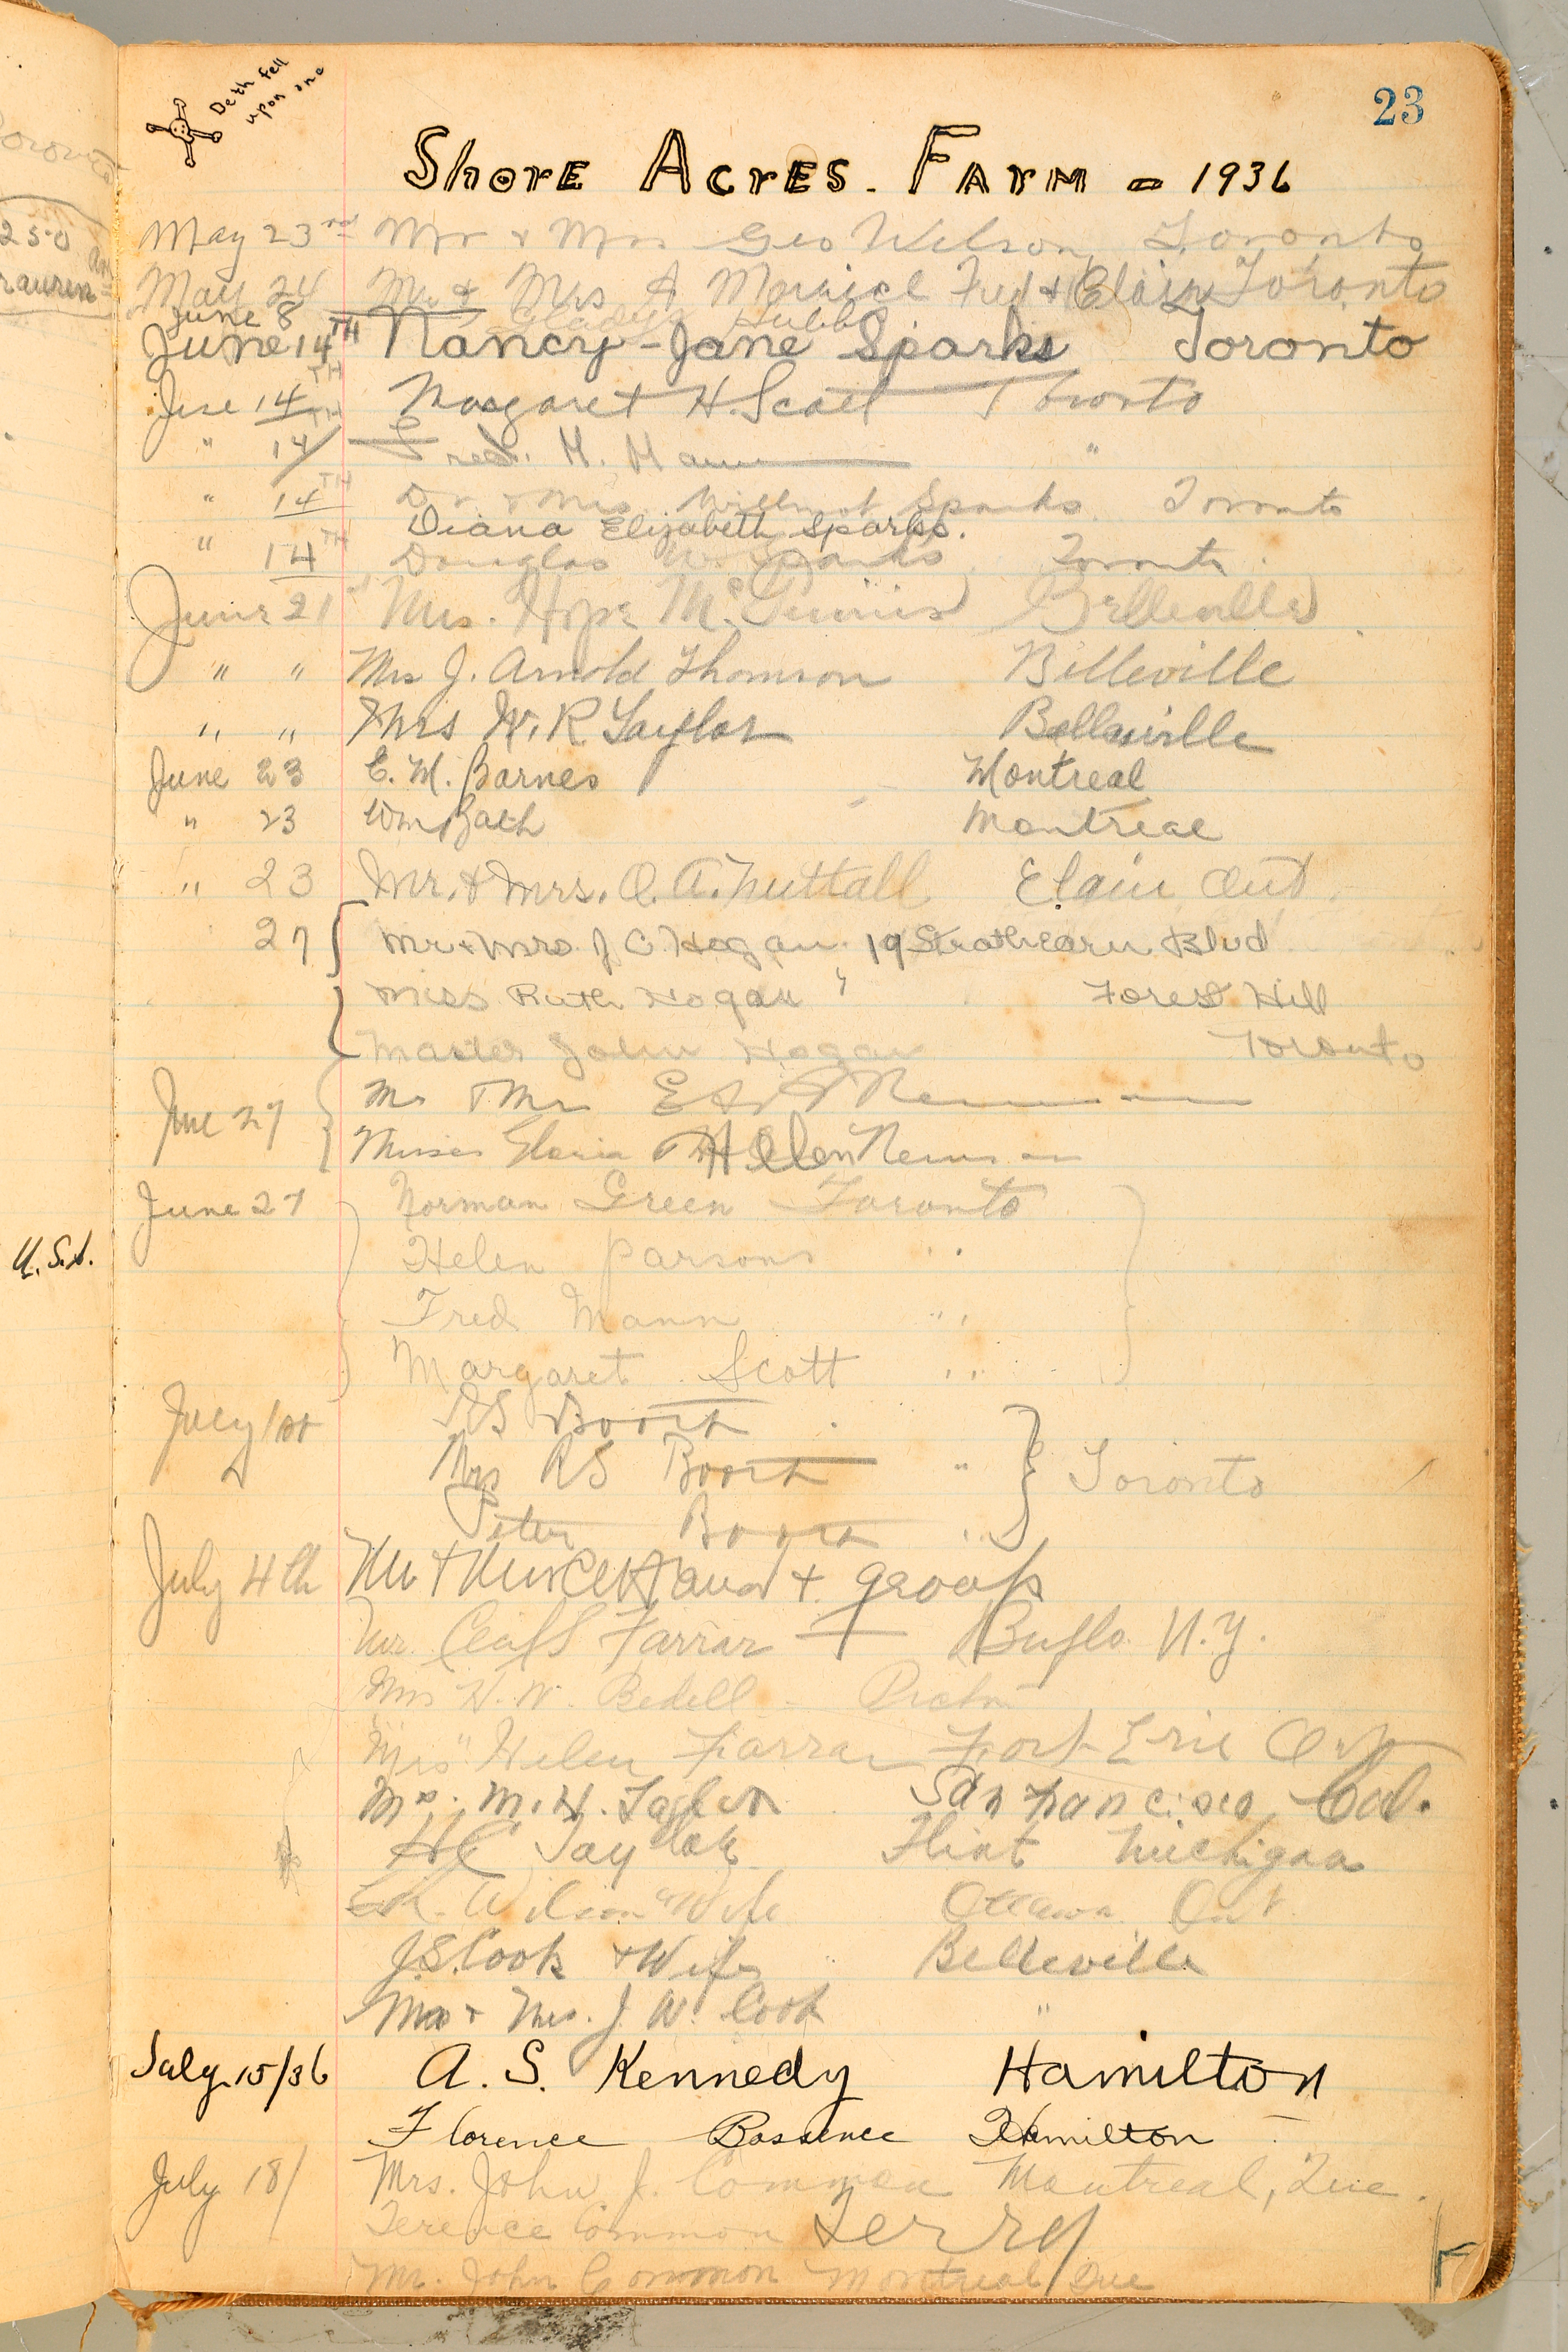 Deth fell
upon one
23
Shore Acres. Farm - 1936
May 23rd Mr & Mrs Geo Wilson, Toronto
May 24 Mr & Mrs A Fred & Clair Toronto
June 8 Gladys Hubbs
June 14TH Nancy-Jane Sparks Toronto
June 14TH Margaret H. Scott Toronto
" 14TH Fred. H. Mann "
" 14TH Dr & Mrs Willmot Sparks Toronto
Diana Elizabeth Sparks.
" 14TH Douglas W. Sparks Toronto.
June 21st Mrs. Hope Belleville
" " Mrs J. Arnold Thomson Belleville
" " Mrs W. R Taylor Belleville
June 23 E. M. Barnes Montreal
" 23 Wm Montreal
" 23 Mr. & Mrs. O. A. Nuttall Ont.
27 Mr & Mrs J C. Hogan. 19 Strathearn Blvd
Miss Ruth Hogan " Forest Hill
Master John Hogan Toronto
June 27 Mr & Mrs
Misses Gloria & Helen
June 27 Norman Green Toronto
Helen Parsons "
Fred Mann "
Margaret Scott "
July 1st RS
Mrs RS " Toronto
Peter "
July 4th + group
Mr. Farrar Buflo. N.Y.
Mrs H. W. Bedell - Picton
Mrs" Helen Farrar Fort Erie Ont
M. H. Taylor San Francisco, Cal.
HC Taylor Flint Michigan
Wilson & Wife Ottawa Ont.
J.S. Cook & Wife Belleville
Mr & Mrs. J. W. Cook "
U.S.A.
July 15/36 A. S. Kennedy Hamilton
Florence Hamilton
July 18/ Mrs. John J. Common Montreal, Que.
Terence Common Terry
Mr. John Common Montreal Que